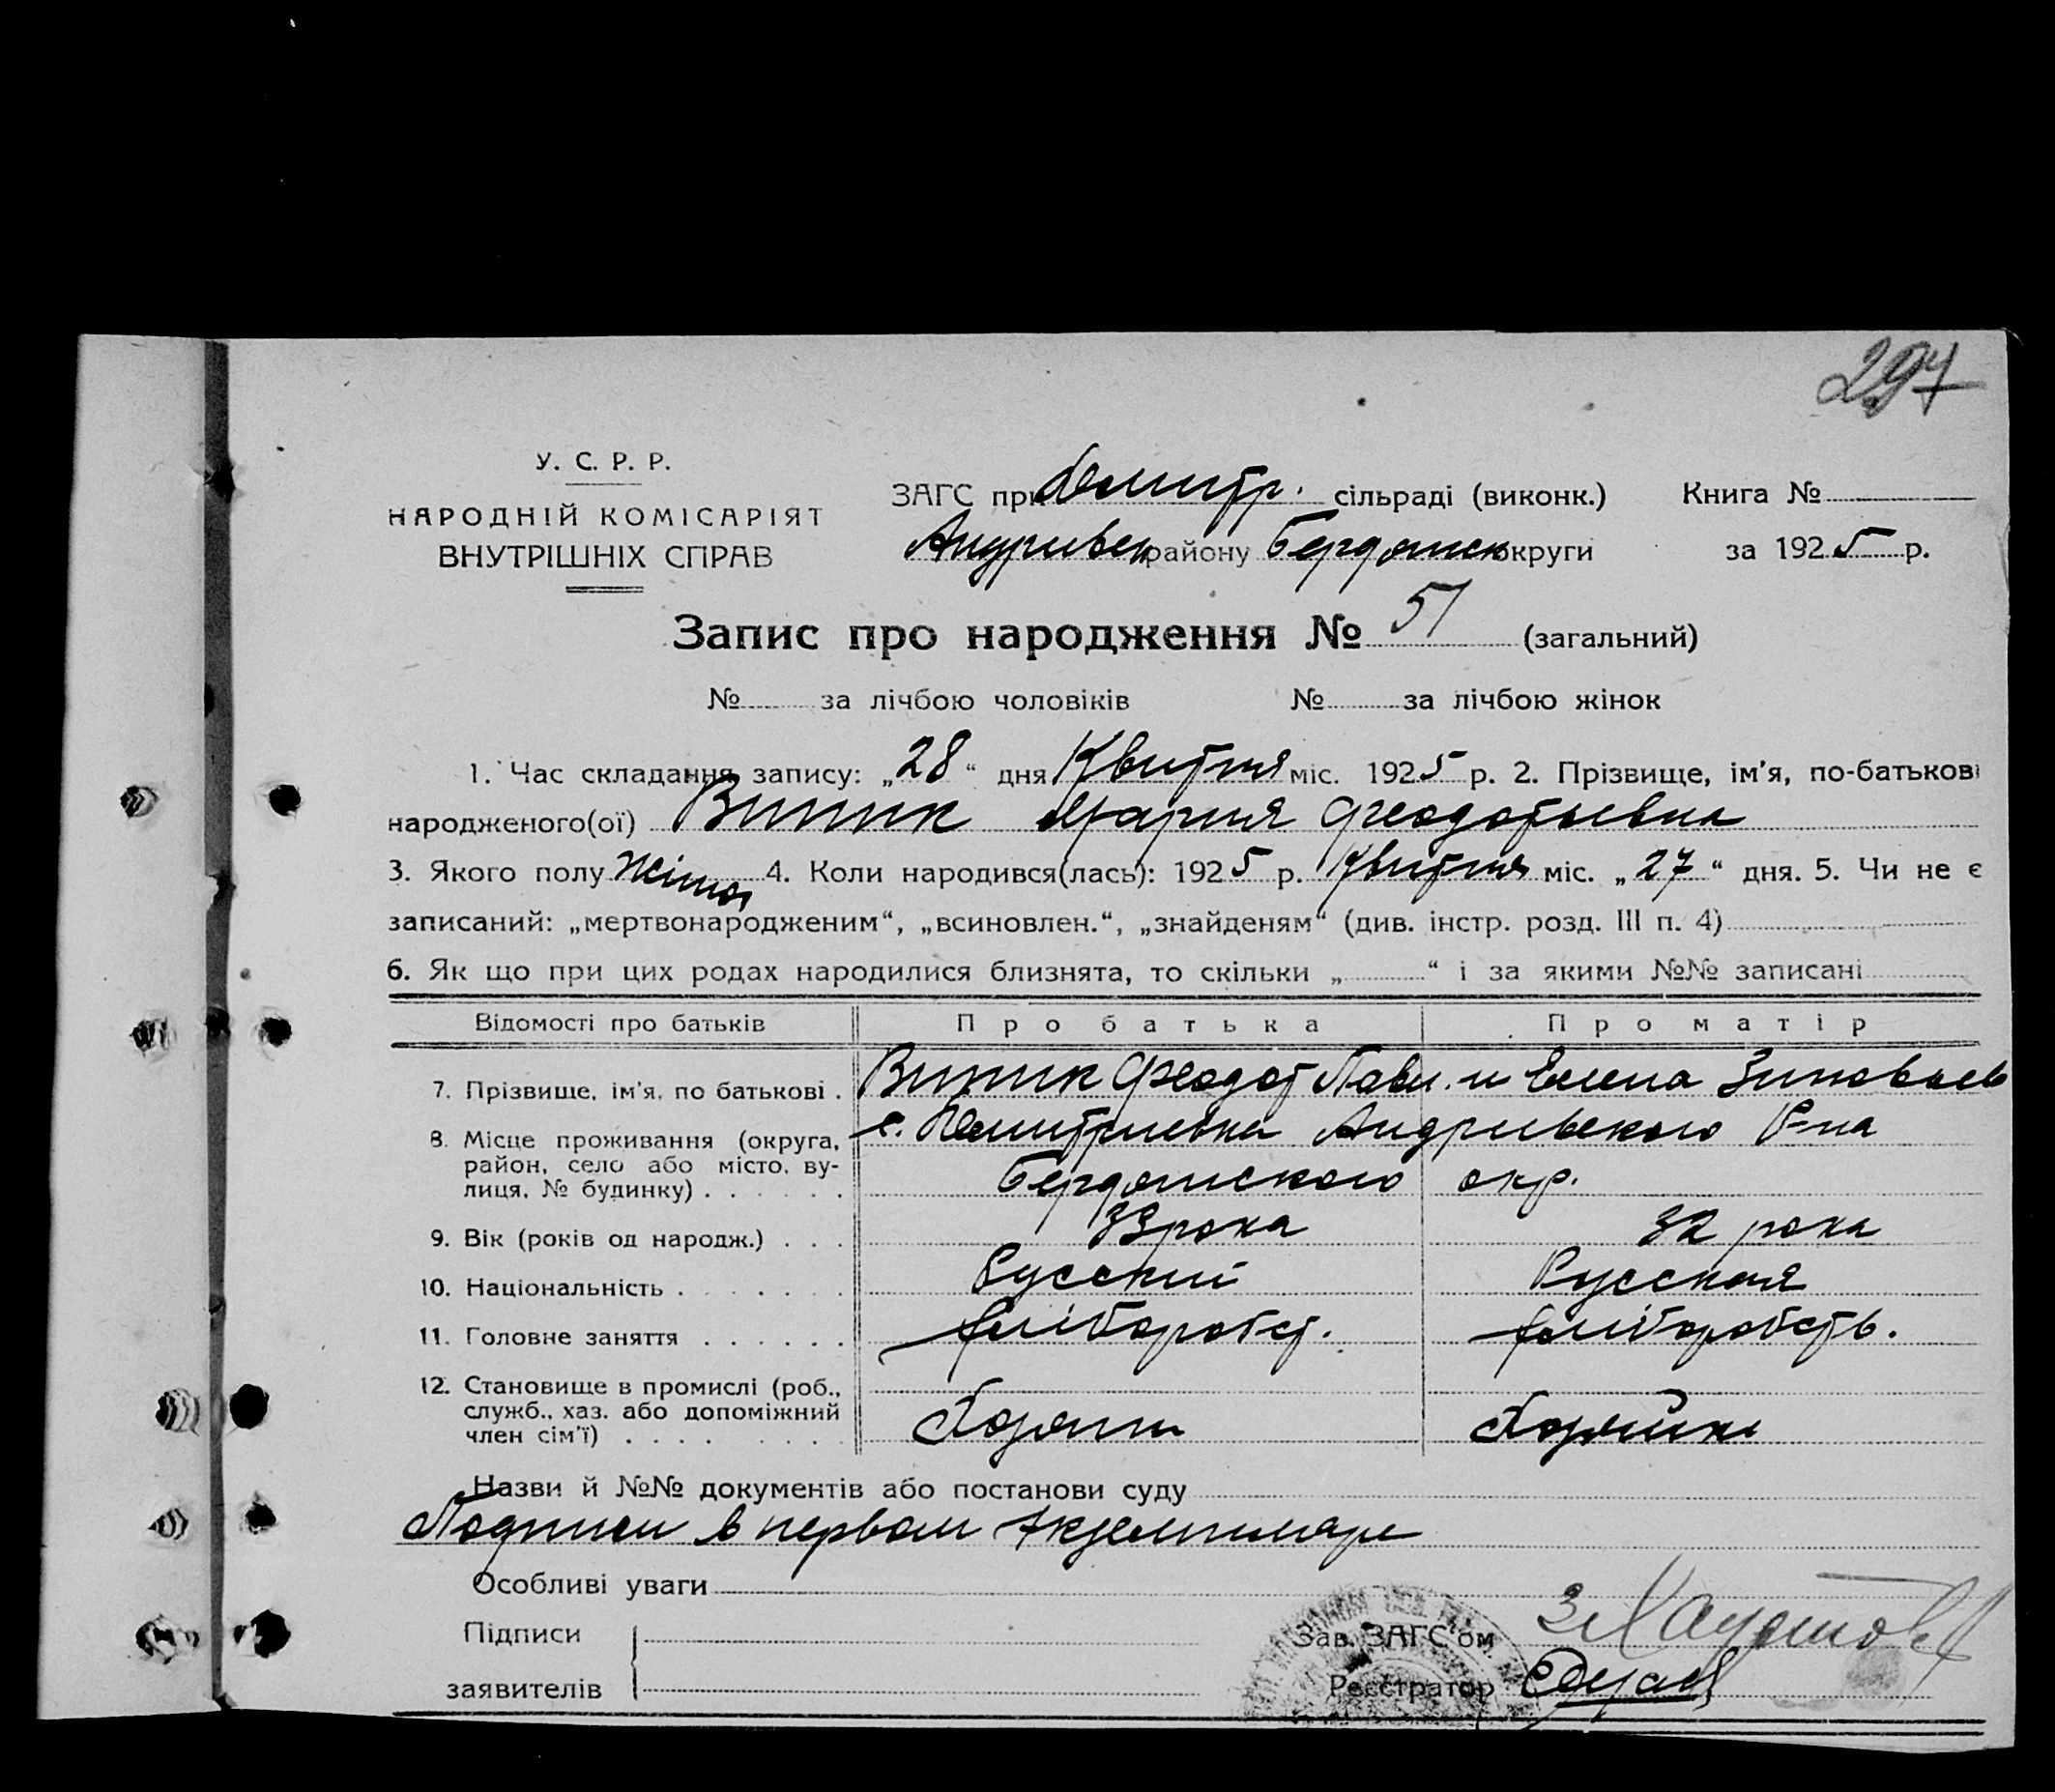 297
У. С. Р. Р.
НАРОДНІЙ КОМІСАРІЯТ
ВНУТРІШНІХ СПРАВ
ЗАГС при Дмитр. сільраді (виконк.) Книга №
Андриевск району Бердянск округи за 1925 р.
Запис про народження № 51 (загальний)
№ за лічбою чоловіків № за лічбою жінок
1. Час складання запису: „28“ дня Квитня міс. 1925 р. 2. Прізвище, ім’я, по-батькові
народженого(ої) Винник Мария Феодотьевна
3. Якого полу Жіноч 4. Коли народився(лась): 1925 р. Квитня міс. „27“ дня. 5. Чи не є
записаний: „мертвонародженим“, „всиновлен.“, „знайденям“ (див. інстр. розд. III п. 4)
6. Як що при цих родах народилися близнята, то скільки „ “ і за якими №№ записані
Відомості про батьків Про батька Про матір
7. Прізвище, ім’я, по батькові . Винник Феодот Павл. и Елена Зиновьев
8. Місце проживання (округа, с. Дмитриевка Андриевского Р-на
район, село або місто, ву-
лиця, № будинку) . . . . . . Бердянского окр.
9. Вік (років од народж.) . . . 33 рока 32 рока
10. Національність . . . . . . . Русский Русская
11. Головне заняття . . . . . . хліборобст. хліборобсть.
12. Становище в промислі (роб.,
служб., хаз. або допоміжний Хозяин Хозяйка
член сім’ї) . . . . . . . . .
Назви й №№ документів або постанови суду
Подписи в первом экземпляре
Особливі уваги
Підписи Зав. ЗАГС’ом
заявителів Реєстратор